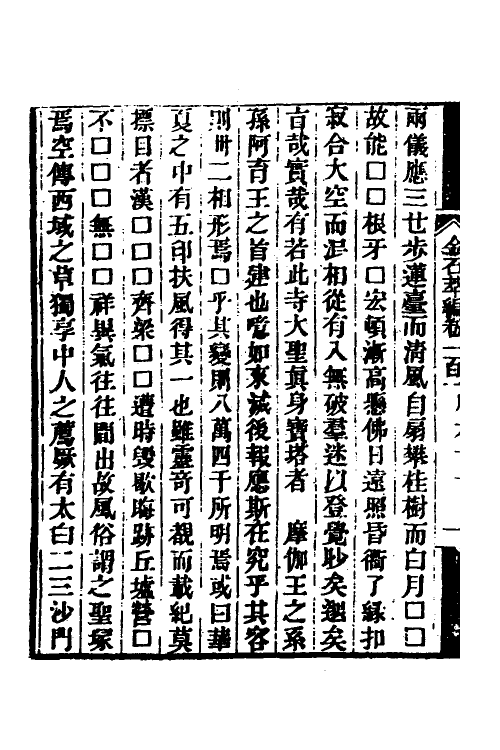 兩儀應三世步蓮臺而淸風自扇攀桂樹而白月□□
故能□□根牙□宏頓漸高懸佛日遠照昏衢了緣扣
寂合大空而混相從有入無破羣迷以登覺眇矣邈矣
旨哉實哉有若此寺大聖眞身寶塔者　摩伽王之系
孫阿育王之首建也噫如來滅後報應斯在究乎其容
則卅二相形焉□乎其變則八萬四千所明焉或曰華
夏之中有五印扶風得其一也雖靈奇可觀而載紀莫
標日者漢□□□齊梁□□遭時毀歇晦跡丘墟營□
不□□□無□□祥異氣往往間出故風俗謂之聖冢
焉空傳西域之草獨享中人之薦厥有太白二三沙門
金石萃編卷一百一